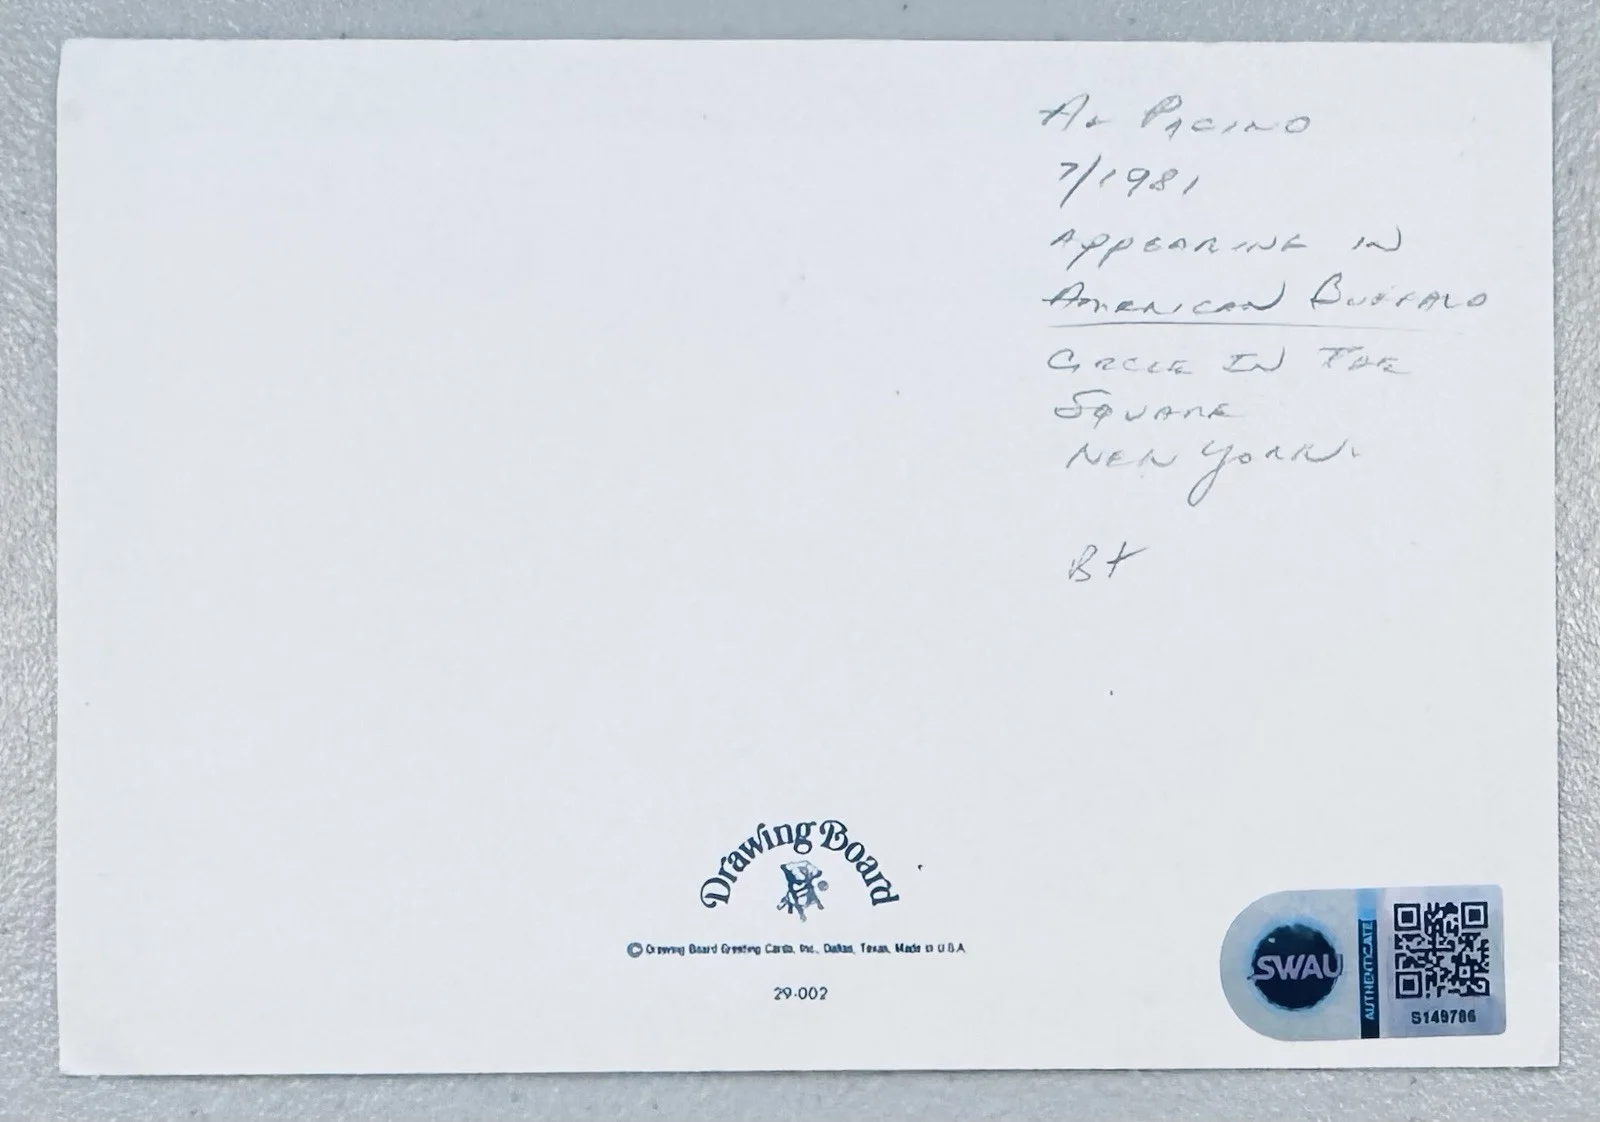 Al Pacino
7/1981
Appearing in
American Buffalo
Circle In The
Square
New York.
BX
Drawing Board
© Drawing Board Greeting Cards, Inc., Dallas, Texas, Made in U.S.A.
29-002
SWAU
AUTHENTICATE
S149786